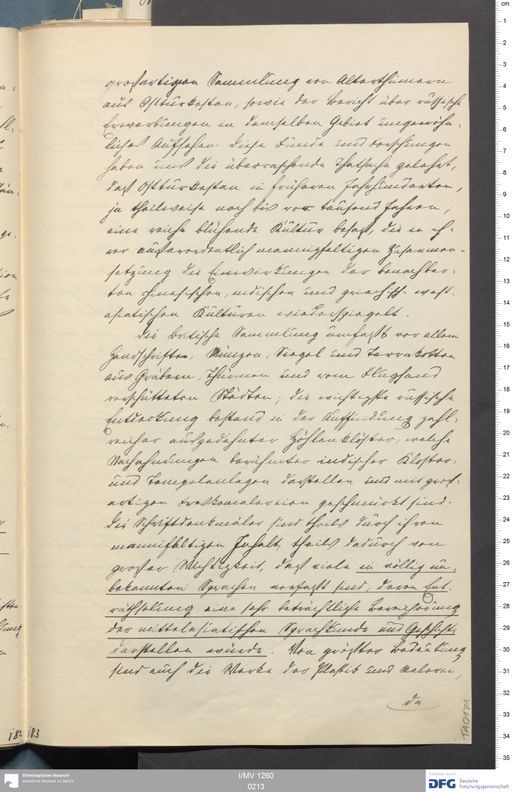 großartigen Sammlung von Alterthümern
aus Ostturkestan, sowie der Bericht über russische
Erwerbungen in demselben Gebiet ungewöhn-
liches Aufsehen. Diese Funde und Forschungen
haben uns die überraschende Thatsache gelehrt,
daß Ostturkestan in früheren Jahrhunderten,
ja theilweise noch bis vor tausend Jahren,
eine reiche blühende Kultur besaß, die in
außerordentlich mannigfaltigen Zusammen-
setzung die Einwirkungen der benachbar-
ten chinesischen, indischen und griechisch-west-
asiatischen Kulturen wiederspiegelt.
Die britische Sammlung umfaßt vor allem
Handschriften, Münzen, Siegel und Terrakotten
aus Gräbern, Thürmen und vom Flugsand
verschütteten Städten; die wichtigste russische
Entdeckung bestand in der Auffindung zahl-
reicher ausgedehnter Höhlenklöster, welche
Nachahmungen berühmter indischer Kloster-
und Tempelanlagen darstellen und mit groß-
artigen Freskomalereien geschmückt sind.
Die Schriftdenkmäler sind theils durch ihren
mannigfaltigen Inhalt, theils dadurch von
großer Wichtigkeit, daß viele in völlig un-
bekannten Sprachen verfaßt sind, deren Ent-
räthselung eine sehr beträchtliche Bereicherung
der mittelasiatischen Sprachkunde und Geschichte
darstellen würde. Von größter Bedeutung
sind auch die Werke der Plastik und Malerei,
da
182 183
TA 0171
Ethnologisches Museum
Staatliche Museen zu Berlin
I/MV 1260
0213
DFG
Deutsche
Forschungsgemeinschaft
cm
1
2
3
4
5
6
7
8
9
10
11
12
13
14
15
16
17
18
19
20
21
22
23
24
25
26
27
28
29
30
31
32
33
34
35